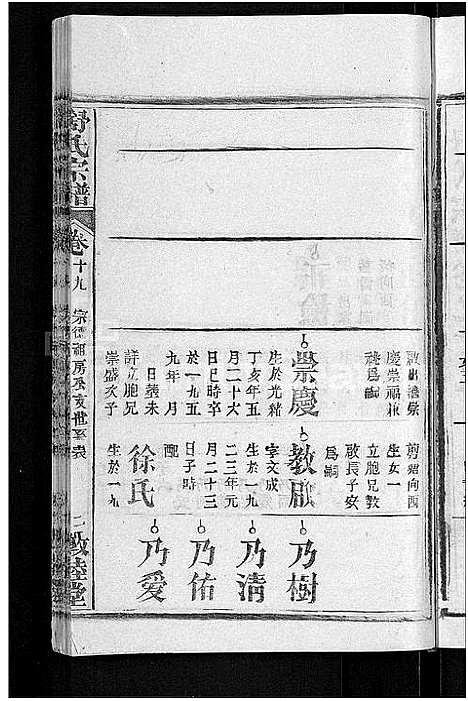 舒氏宗譜
卷十九
宗德祖房
二
敦睦堂
慶崇福兼
祧為嗣
崇慶
生於光緒
丁亥年五
月二十六
日巳時卒
於一九五
九年 月
日葬朱
詳立胞兄
崇盛次子
剪裙向西
生女一
立胞兄教
啟長子安
為嗣
教
字文成
生於一九
二三年元
月二十三
日子時
配
徐氏
生於一九
乃樹
乃清
乃佑
乃愛